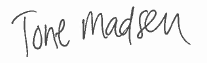 Tone Madsen